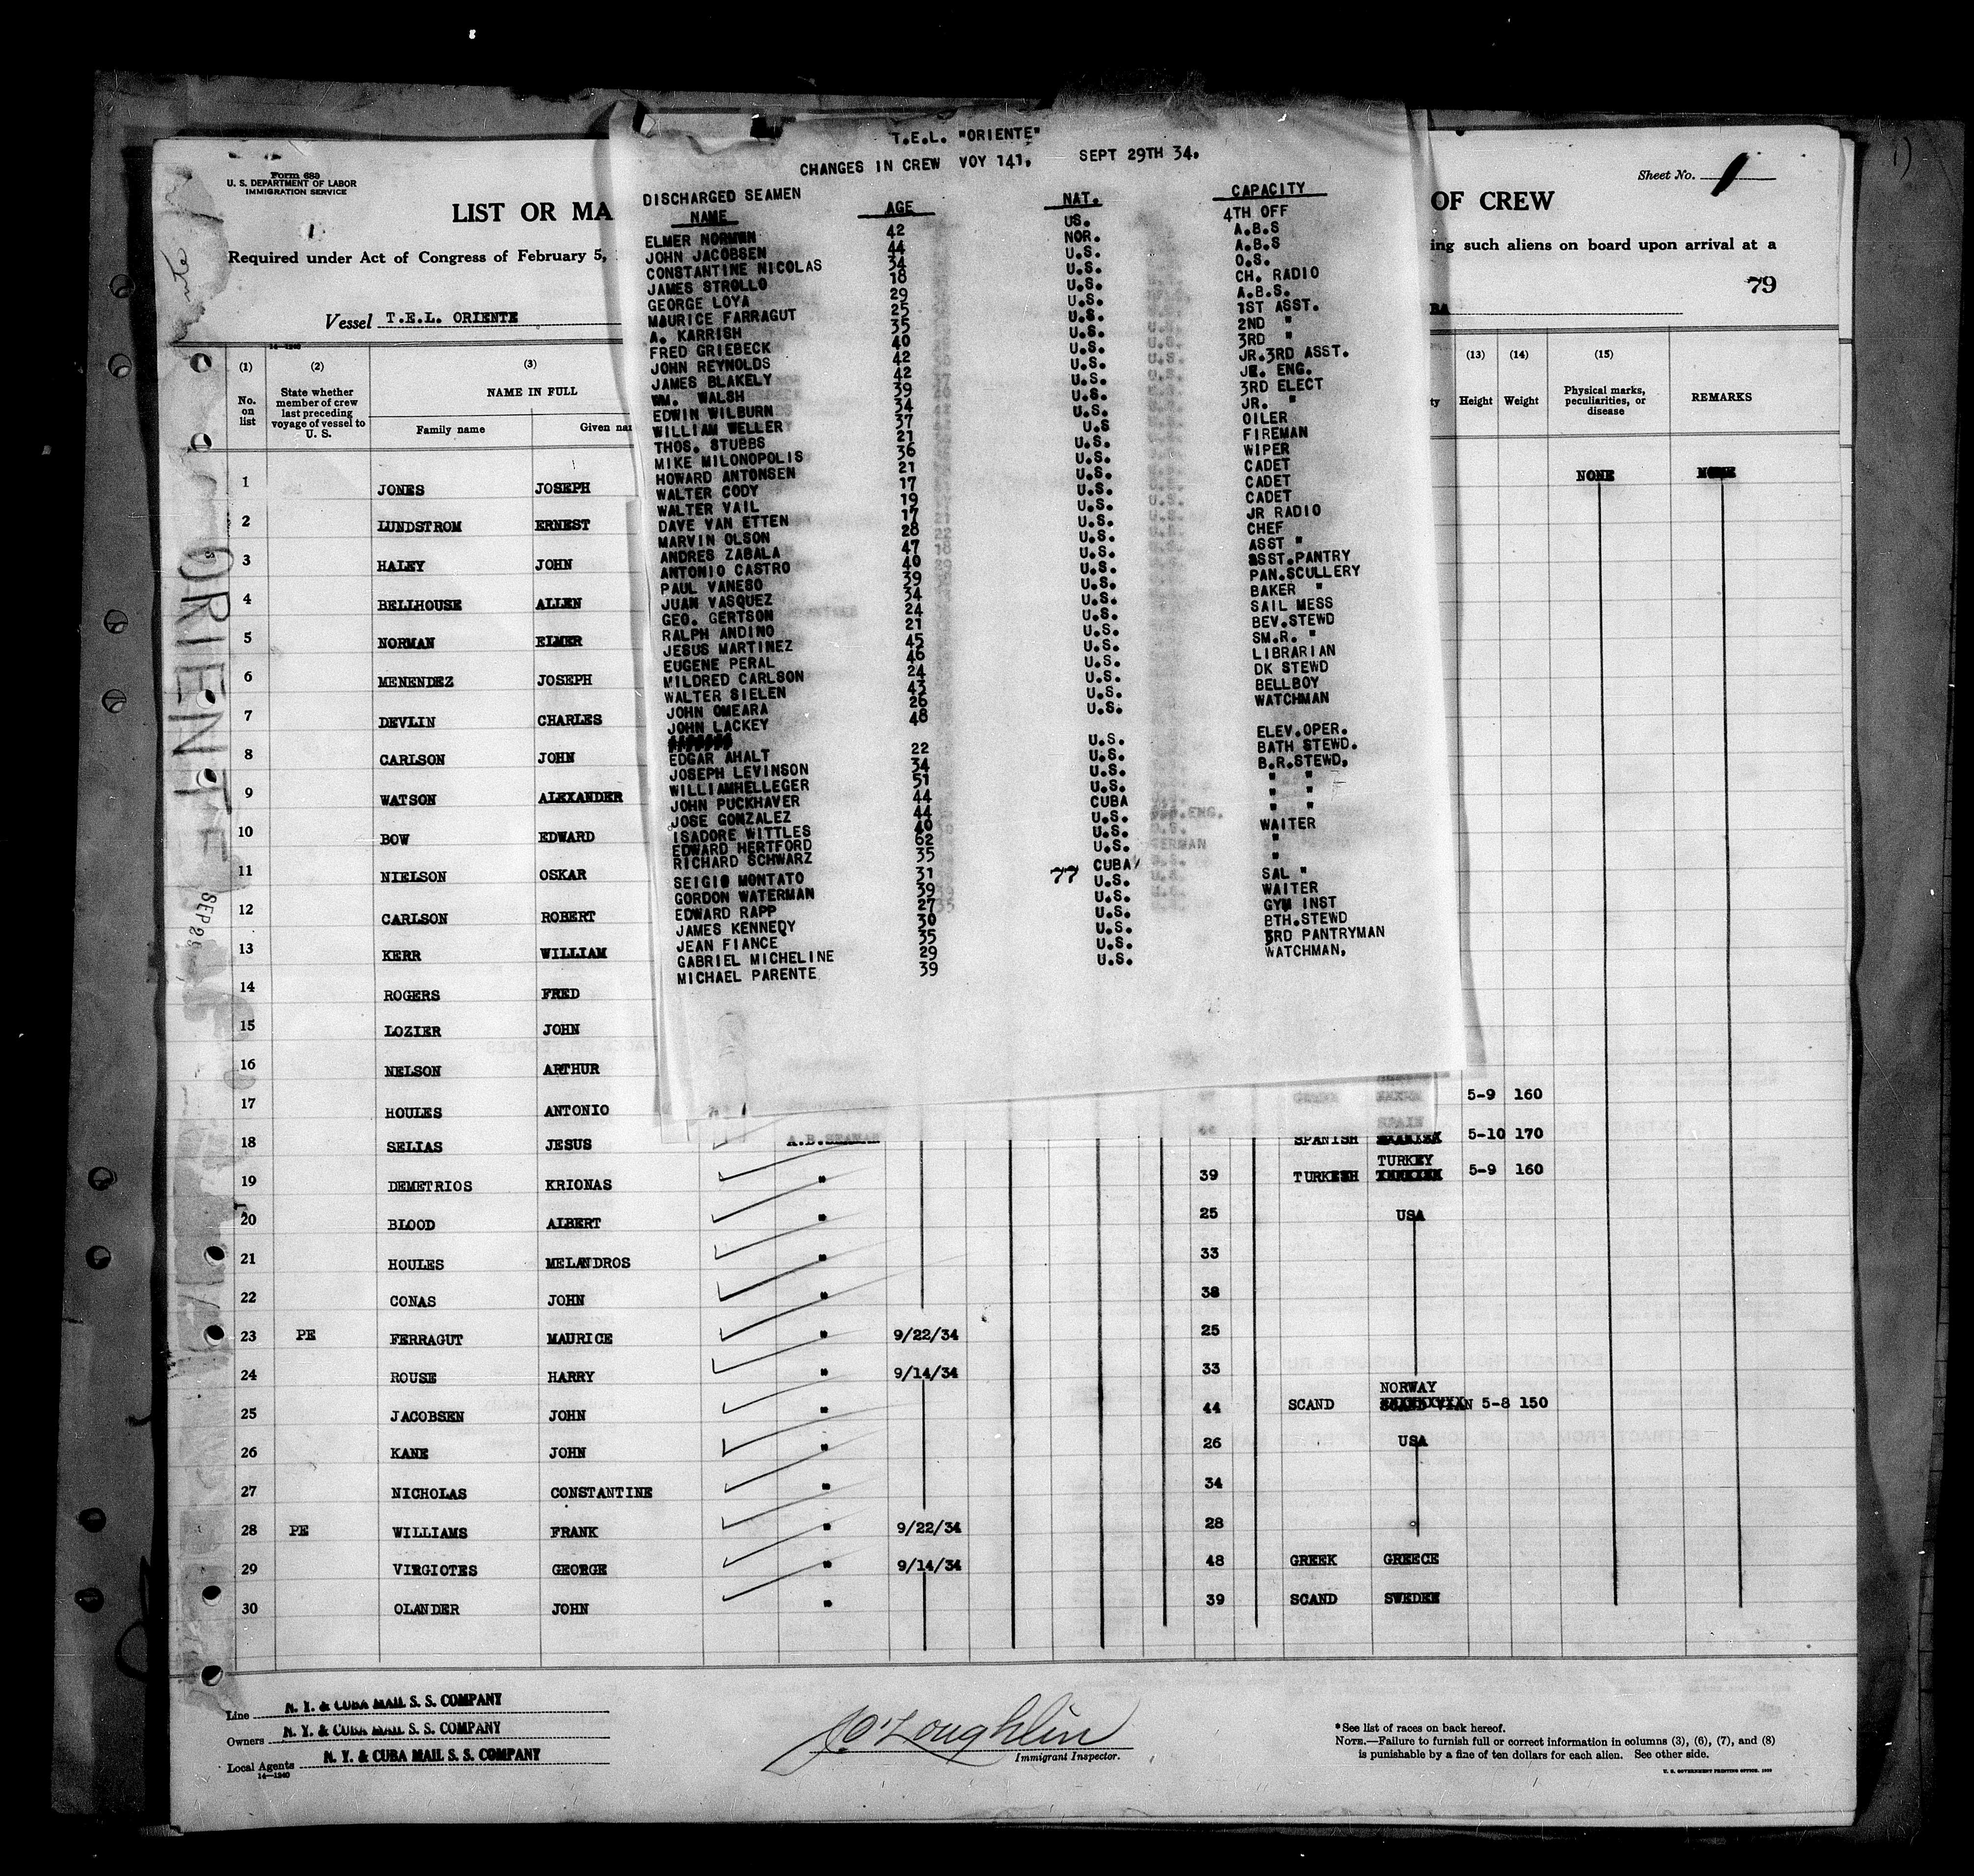 Form 680
U. S. DEPARTMENT OF LABOR
IMMIGRATION SERVICE
Sheet No. 1
LIST OR MA
OF CREW
Required under Act of Congress of February 5,
ing such aliens on board upon arrival at a
79
Vessel T.E.L. ORIENTE
BA
T.E.L. "ORIENTE"
CHANGES IN CREW VOY 141. SEPT 29TH 34.
DISCHARGED SEAMEN
NAME AGE NAT. CAPACITY
ELMER NORMWN 42 US. 4TH OFF
JOHN JACOBSEN 44 NOR. A.B.S
CONSTANTINE NICOLAS 34 U.S. A.B.S
JAMES STROLLO 18 U.S. O.S.
GEORGE LOYA 29 U.S. CH. RADIO
MAURICE FARRAGUT 25 U.S. A.B.S.
A. KARRISH 35 U.S. 1ST ASST.
FRED GRIEBECK 40 U.S. 2ND "
JOHN REYNOLDS 42 U.S. 3RD "
JAMES BLAKELY 42 U.S. JR.3RD ASST.
WM. WALSH 39 U.S. JR. ENG.
EDWIN WILBURN 34 U.S. 3RD ELECT
WILLIAM WELLER 37 U.S. JR. "
THOS. STUBBS 21 U.S OILER
MIKE MILONOPOLIS 36 U.S. FIREMAN
HOWARD ANTONSEN 21 U.S. WIPER
WALTER CODY 17 U.S. CADET
WALTER VAIL 19 U.S. CADET
DAVE VAN ETTEN 17 U.S. CADET
MARVIN OLSON 28 U.S. JR RADIO
ANDRES ZABALA 47 U.S. CHEF
ANTONIO CASTRO 40 U.S. ASST "
PAUL VANESO 39 U.S. ASST.PANTRY
JUAN VASQUEZ 34 U.S. PAN.SCULLERY
GEO. GERTSON 24 U.S. BAKER "
RALPH ANDINO 21 U.S. SAIL MESS
JESUS MARTINEZ 45 U.S. BEV.STEWD
EUGENE PERAL 46 U.S. SM.R. "
MILDRED CARLSON 24 U.S. LIBRARIAN
WALTER SIELEN 43 U.S. DK STEWD
JOHN OMEARA 26 U.S. BELLBOY
JOHN LACKEY 48 U.S. WATCHMAN
EDGAR AHALT 22 U.S. ELEV.OPER.
JOSEPH LEVINSON 34 U.S. BATH STEWD.
WILLIAMHELLEGER 51 U.S. B.R.STEWD.
JOHN PUCKHAVER 44 U.S. " "
JOSE GONZALEZ 44 CUBA " "
ISADORE WITTLES 40 U.S. " "
EDWARD HERTFORD 62 U.S. WAITER
RICHARD SCHWARZ 35 U.S. "
SEIGIO MONTATO 31 77 CUBA "
GORDON WATERMAN 39 U.S. SAL "
EDWARD RAPP 27 U.S. WAITER
JAMES KENNEDY 30 U.S. GYM INST
JEAN FIANCE 35 U.S. BTH.STEWD
GABRIEL MICHELINE 29 U.S. 3RD PANTRYMAN
MICHAEL PARENTE 39 U.S. WATCHMAN.
14-1240
(1) (2) (3) (13) (14) (15)
No. on list
State whether member of crew last preceding voyage of vessel to U. S.
NAME IN FULL
Family name
Given nam
ty
Height
Weight
Physical marks, peculiarities, or disease
REMARKS
1 JONES JOSEPH NONE NONE
2 LUNDSTROM ERNEST
3 HALEY JOHN
4 BELLHOUSE ALLEN
5 NORMAN ELMER
6 MENENDEZ JOSEPH
7 DEVLIN CHARLES
8 CARLSON JOHN
9 WATSON ALEXANDER
10 BOW EDWARD
11 NIELSON OSKAR
12 CARLSON ROBERT
13 KERR WILLIAM
14 ROGERS FRED
15 LOZIER JOHN
16 NELSON ARTHUR
17 HOULES ANTONIO 5-9 160
18 SELIAS JESUS A.B.SEAMAN SPANISH SPAIN 5-10 170
19 DEMETRIOS KRIONAS " 39 TURKISH TURKEY 5-9 160
20 BLOOD ALBERT " 25 USA
21 HOULES MELANDROS " 33
22 CONAS JOHN " 38
23 PE FERRAGUT MAURICE " 9/22/34 25
24 ROUSE HARRY " 9/14/34 33
25 JACOBSEN JOHN " 44 SCAND NORWAY 5-8 150
26 KANE JOHN " 26 USA
27 NICHOLAS CONSTANTINE " 34
28 PE WILLIAMS FRANK " 9/22/34 28
29 VIRGIOTES GEORGE " 9/14/34 48 GREEK GREECE
30 OLANDER JOHN " 39 SCAND SWEDEN
ORIENTE
SEP 29
Line N. Y. & CUBA MAIL S. S. COMPANY
Owners N. Y. & CUBA MAIL S. S. COMPANY
Local Agents N. Y. & CUBA MAIL S. S. COMPANY
14-1240
Immigrant Inspector.
*See list of races on back hereof.
NOTE.—Failure to furnish full or correct information in columns (3), (6), (7), and (8)
is punishable by a fine of ten dollars for each alien. See other side.
U. S. GOVERNMENT PRINTING OFFICE